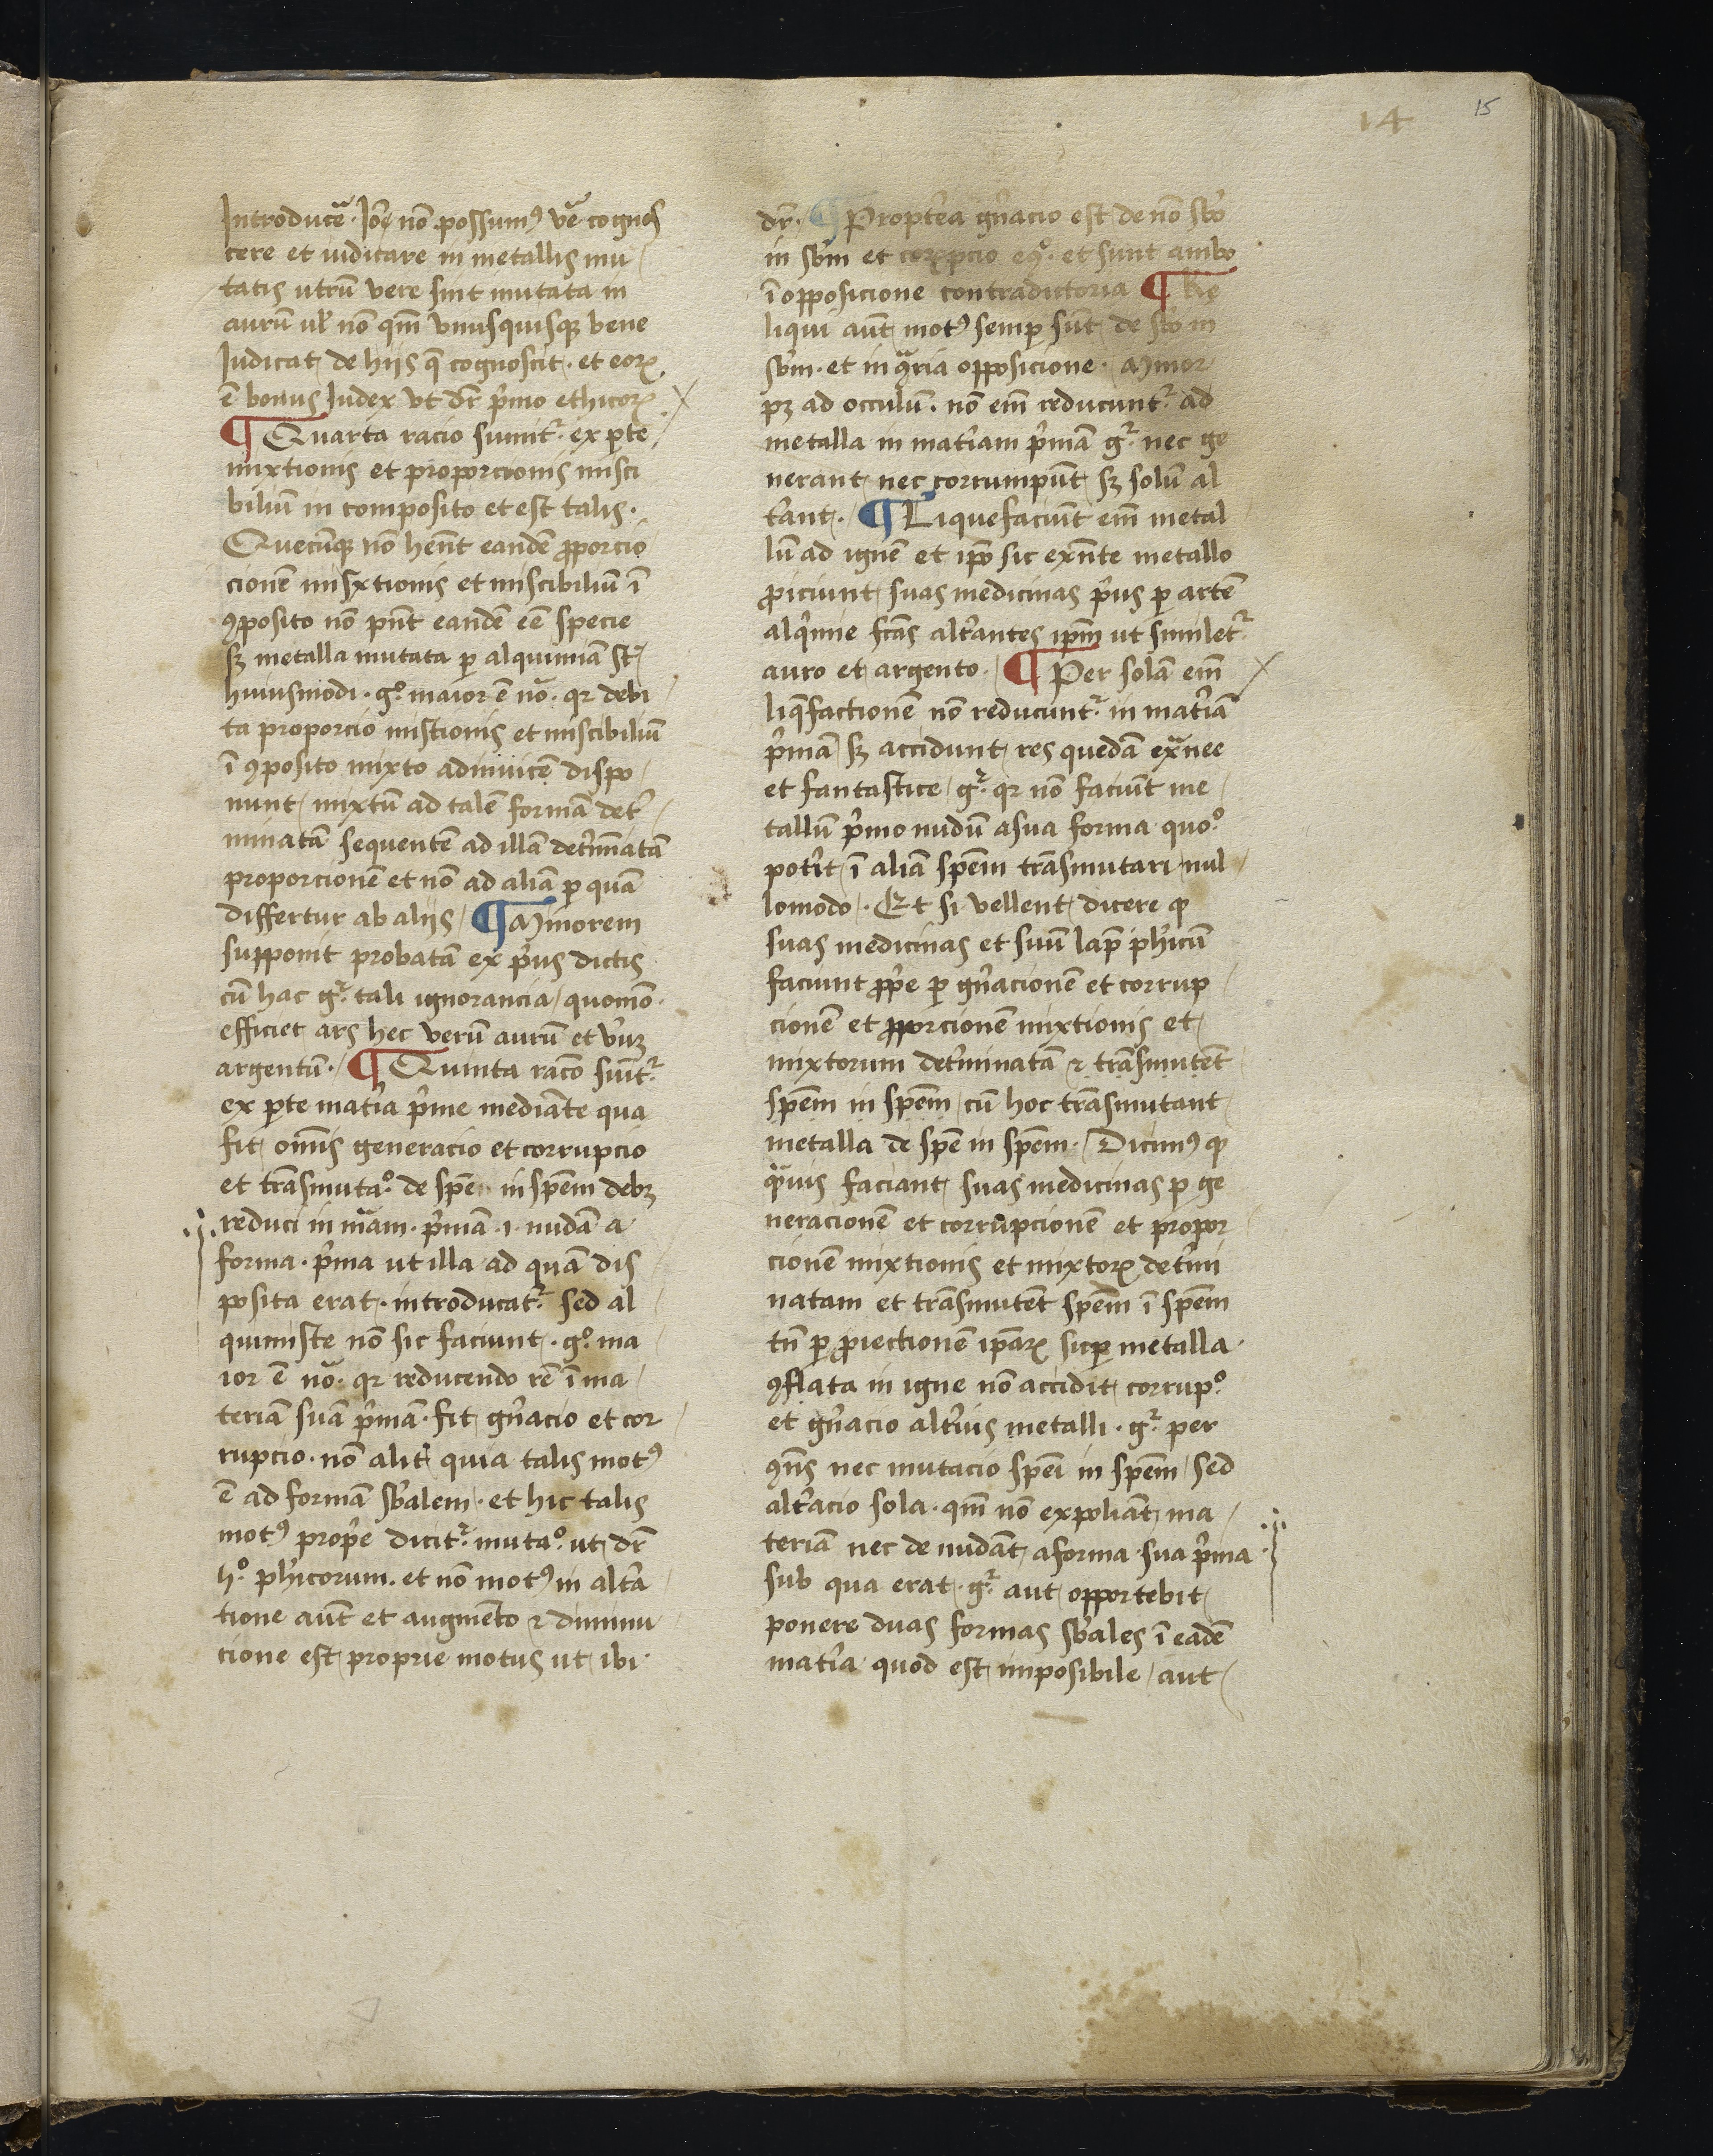 14
15
Introducẽ · Iõe nõ possumꝰ vẽ cognos
cere et iudicare in metallis mu
tatis utrũ vere sint mutata in
aurũ ul̃ nõ qm̃ vnusquisqꝫ bene
Iudicat de hijs q̃ cognoscit · et eoꝝ
ẽ bonus Iudex vt dr̃ p̃mo ethicoꝝ
¶ Quarta racio sumit᷑ · ex ꝑte
mixtionis et proporcionis misci
biliũ in composito et est talis ·
Quecũqꝫ nõ hẽnt eandẽ ꝓporcio
cionẽ misxtionis et miscibiliũ ĩ
ꝯposito nõ pñt eandẽ eẽ specie
sꝫ metalla mutata ꝑ alquimiã st᷑
huiusmodi · gͦ maior ẽ nã · qr debi
ta proporcio mistionis et miscibiliũ
ĩ ꝯposito mixto adinuicẽ dispo
nunt mixtũ ad talẽ formã det̾
minatã sequentẽ ad illã det̾mĩatã
proporcionẽ et nõ ad aliã ꝑ quã
differtur ab alijs / ¶ Minorem
supponit probatã ex p̃us dictis
cũ hac g᷑ tali ignorancia / quomõ ·
efficiet ars hec verũ aurũ et v̾uꝫ
argentũ · / ¶ Quinta racõ sũit᷑
ex ꝑte mat̾ia p̃me mediãte qua
fit om̃is generacio et corrupcio
et trãsmutaͦ · de spẽ in spẽm debꝫ
reduci in mãm · p̃mã · i · nudã a
forma · p̃ma ut illa ad quã dis
posita erat · introducat᷑ sed al
quimiste nõ sic faciunt · gͦ ma
ior ẽ nã · qr reducendo rẽ ĩ ma
teriã suã p̃mã · fit gñacio et cor
rupcio · nõ alit̾ quia talis motꝰ
ẽ ad formã sb̾alem · et hic talis
motꝰ prop̾e dicit᷑ mutaͦ · ut dr̃
hͦ · ph̾icorum · et nõ motꝰ in alt̾a
tione aũt et augmẽto ⁊ diminu
cione est proprie motus ut ibi ·
dr̃ · ¶ Propt̾ea gñacio est de nõ sb̾o
in sb̾m et coꝝpcio eqͦ · et sunt ambo
ĩ opposicione contradictoria ¶ Re
liqui aũt motꝰ semꝑ sũt de sb̾o in
sb̾m · et in ꝯ̃ria opposicione · Minor
pꝫ ad occulũ · nõ em̃ reducunt᷑ ad
metalla in mat̾iam p̃mã g᷑ · nec ge
nerant nec corrumpũt sꝫ solũ al
t̾ant · / ¶ Liquefaciũt em̃ metal
lũ ad ignẽ et ip̃o sic exñte metallo
ꝓiciunt suas medicinas p̃us ꝑ artẽ
alq̾mie fc̃as alt̾antes ip̃m ut similet᷑
auro et argento · ¶ Per solã em̃
liq̃factionẽ nõ reducunt᷑ in mat̾iã
p̃mã sꝫ accidunt res quedã exãnee
et fantastice / g᷑ qr nõ faciũt me
tallũ p̃mo nudũ a sua forma quoͦ
pot̾it ĩ aliã spẽm trãsmutari / nul
lomodo · Et si vellent dicere ꝙ
suas medicinas et suũ lap̃ ph̾icũ
faciunt ꝓp̾e ꝑ gñacionẽ et corrup
cionẽ et ꝓporcionẽ mixtionis et
mixtorum det̾minatã ⁊ trãsmutẽt
spẽm in spẽm / cũ hoc trãsmutant
metalla de spẽ in spẽm · / Dicimꝰ ꝙ
q̃uis faciant suas medicinas ꝑ ge
neracionẽ et corrupcionẽ et propor
cionẽ mixtionis et mixtoꝝ det̾mi
natam et trãsmutẽt spẽm ĩ spẽm
tñ ꝑ ꝓiectionẽ ip̃aꝝ suꝑ metalla ·
ꝯflata in igne nõ accidit corrupͦ ·
et gñacio alt̾ius metalli · g᷑ per
ꝯñs nec mutacio spẽi in spẽm / sed
alt̾acio sola · qm̃ nõ expoliãt ma
teriã nec de nudãt a forma sua p̃ma
sub qua erat · g᷑ aut opportebit
ponere duas formas sb̾ales ĩ eadẽ
mat̾ia quod est imposibile / aut